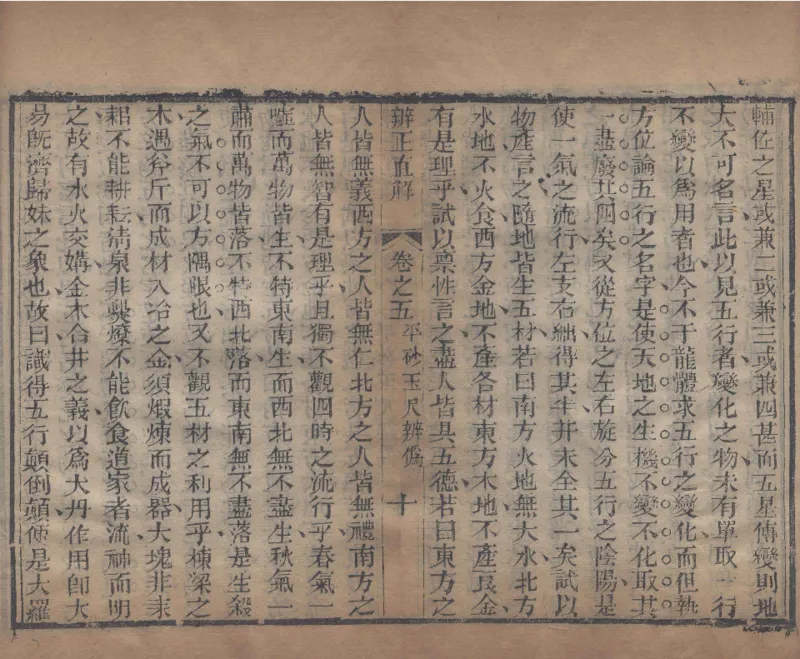 輔佐之星或兼二或兼三或兼四甚而五星傳變則地
大不可名言此以見五行者變化之物未有單取一行
不變以為用者也今不于龍體求五行之變化而但執
方位論五行之名字是使天地之生機不變不化取其
一盡廢其四矣又從方位之左右旋分五行之陰陽是
使一氣之流行左支右絀得其半并未全其一矣試以
物產言之隨地皆生五材若曰南方火地無大水北方
水地不火食西方金地不產各材東方木地不產良金
有是理乎試以稟性言之盡人皆具五德若曰東方之
辨正直解
卷之五
平砂玉尺辨僞
十
人皆無義西方之人皆無仁北方之人皆無禮南方之
人皆無智有是理乎且獨不觀四時之流行乎春氣一
噓而萬物皆生不特東南生而西北無不盡生秋氣一
肅而萬物皆落不特西北落而東南無不盡落是生殺
之氣不可以方隅限也又不觀五材之利用乎棟梁之
木遇斧斤而成材入冶之金須煆煉而成器大塊非耒
耜不能耕耘清泉非爨燎不能飲食道家者流神而明
之故有水火交媾金木合井之義以為大丹作用即大
易既濟歸妹之象也故曰識得五行顛倒顛便是大羅